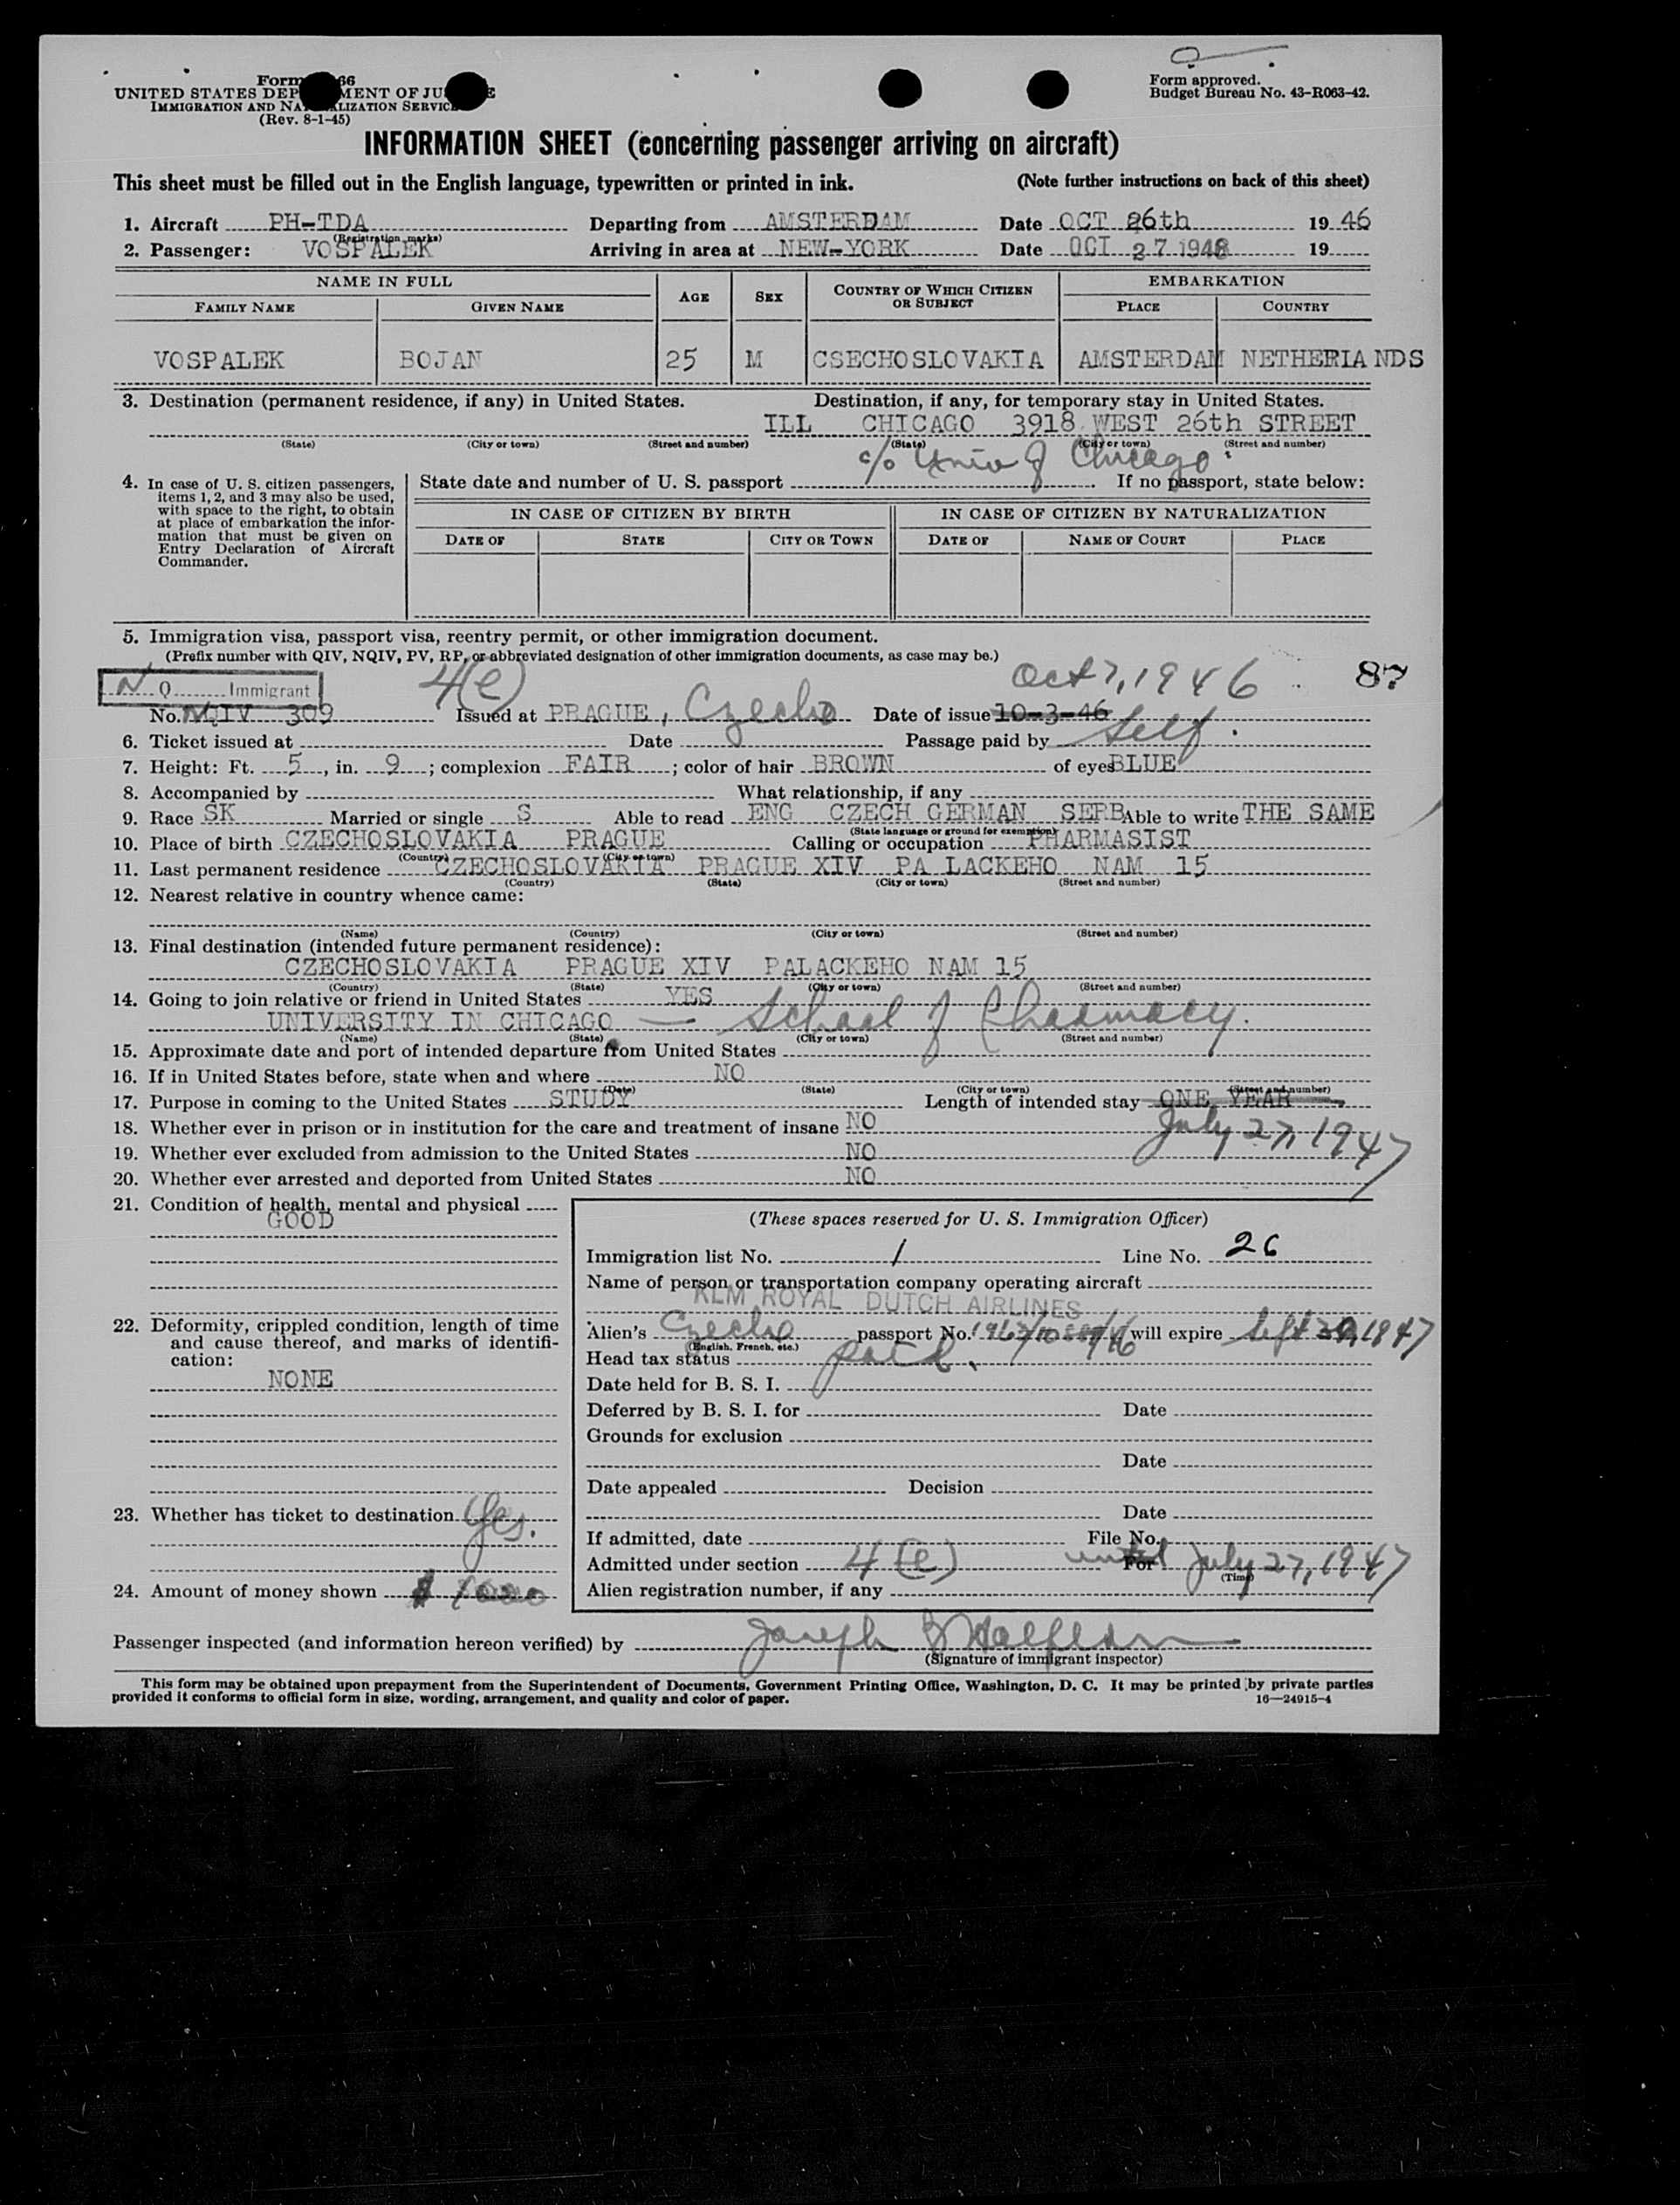 Form 66
UNITED STATES DEP MENT OF JU E
IMMIGRATION AND NA LIZATION SERVIC
(Rev. 8-1-45)
Form approved.
Budget Bureau No. 43-R063-42.
INFORMATION SHEET (concerning passenger arriving on aircraft)
This sheet must be filled out in the English language, typewritten or printed in ink. (Note further instructions on back of this sheet)
1. Aircraft PH-TDA Departing from AMSTERDAM Date OCT 26th 19 46
(Registration marks)
2. Passenger: VOSPALEK Arriving in area at NEW-YORK Date OCT 27 1946 19
NAME IN FULL AGE SEX COUNTRY OF WHICH CITIZEN OR SUBJECT EMBARKATION
FAMILY NAME GIVEN NAME PLACE COUNTRY
VOSPALEK BOJAN 25 M CSECHOSLOVAKIA AMSTERDAM NETHERLANDS
3. Destination (permanent residence, if any) in United States. Destination, if any, for temporary stay in United States.
ILL CHICAGO 3918 WEST 26th STREET
(State) (City or town) (Street and number) (State) (City or town) (Street and number)
c/o Univ of Chicago
4. In case of U. S. citizen passengers, items 1, 2, and 3 may also be used, with space to the right, to obtain at place of embarkation the information that must be given on Entry Declaration of Aircraft Commander.
State date and number of U. S. passport If no passport, state below:
IN CASE OF CITIZEN BY BIRTH IN CASE OF CITIZEN BY NATURALIZATION
DATE OF STATE CITY OR TOWN DATE OF NAME OF COURT PLACE
5. Immigration visa, passport visa, reentry permit, or other immigration document.
(Prefix number with QIV, NQIV, PV, RP, or abbreviated designation of other immigration documents, as case may be.)
N Q Immigrant 4(e) Oct 7, 1946 87
No. NQIV 309 Issued at PRAGUE, Czecho Date of issue 10-3-46
6. Ticket issued at Date Passage paid by Self.
7. Height: Ft. 5, in. 9; complexion FAIR; color of hair BROWN of eyes BLUE
8. Accompanied by What relationship, if any
9. Race SK Married or single S Able to read ENG CZECH GERMAN SERB Able to write THE SAME
(State language or ground for exemption)
10. Place of birth CZECHOSLOVAKIA PRAGUE Calling or occupation PHARMASIST
(Country) (City or town)
11. Last permanent residence CZECHOSLOVAKIA PRAGUE XIV PA LACKEHO NAM 15
(Country) (State) (City or town) (Street and number)
12. Nearest relative in country whence came:
(Name) (Country) (City or town) (Street and number)
13. Final destination (intended future permanent residence):
CZECHOSLOVAKIA PRAGUE XIV PALACKEHO NAM 15
(Country) (State) (City or town) (Street and number)
14. Going to join relative or friend in United States YES
UNIVERSITY IN CHICAGO — School of Pharmacy.
(Name) (State) (City or town) (Street and number)
15. Approximate date and port of intended departure from United States
16. If in United States before, state when and where NO
(Date) (State) (City or town) (Street and number)
17. Purpose in coming to the United States STUDY Length of intended stay ONE YEAR
18. Whether ever in prison or in institution for the care and treatment of insane NO July 27, 1947
19. Whether ever excluded from admission to the United States NO
20. Whether ever arrested and deported from United States NO
21. Condition of health, mental and physical
GOOD
22. Deformity, crippled condition, length of time and cause thereof, and marks of identification:
NONE
23. Whether has ticket to destination Yes.
24. Amount of money shown $ 1000
(These spaces reserved for U. S. Immigration Officer)
Immigration list No. 1 Line No. 26
Name of person or transportation company operating aircraft
KLM ROYAL DUTCH AIRLINES
Alien's Czecho passport No. will expire Sept 1947
(English, French, etc.)
Head tax status paid.
Date held for B. S. I.
Deferred by B. S. I. for Date
Grounds for exclusion
Date
Date appealed Decision
Date
If admitted, date File No.
Admitted under section 4(e) until For July 27, 1947
(Time)
Alien registration number, if any
Passenger inspected (and information hereon verified) by Joseph
(Signature of immigrant inspector)
This form may be obtained upon prepayment from the Superintendent of Documents, Government Printing Office, Washington, D. C. It may be printed by private parties
provided it conforms to official form in size, wording, arrangement, and quality and color of paper. 16—24915-4